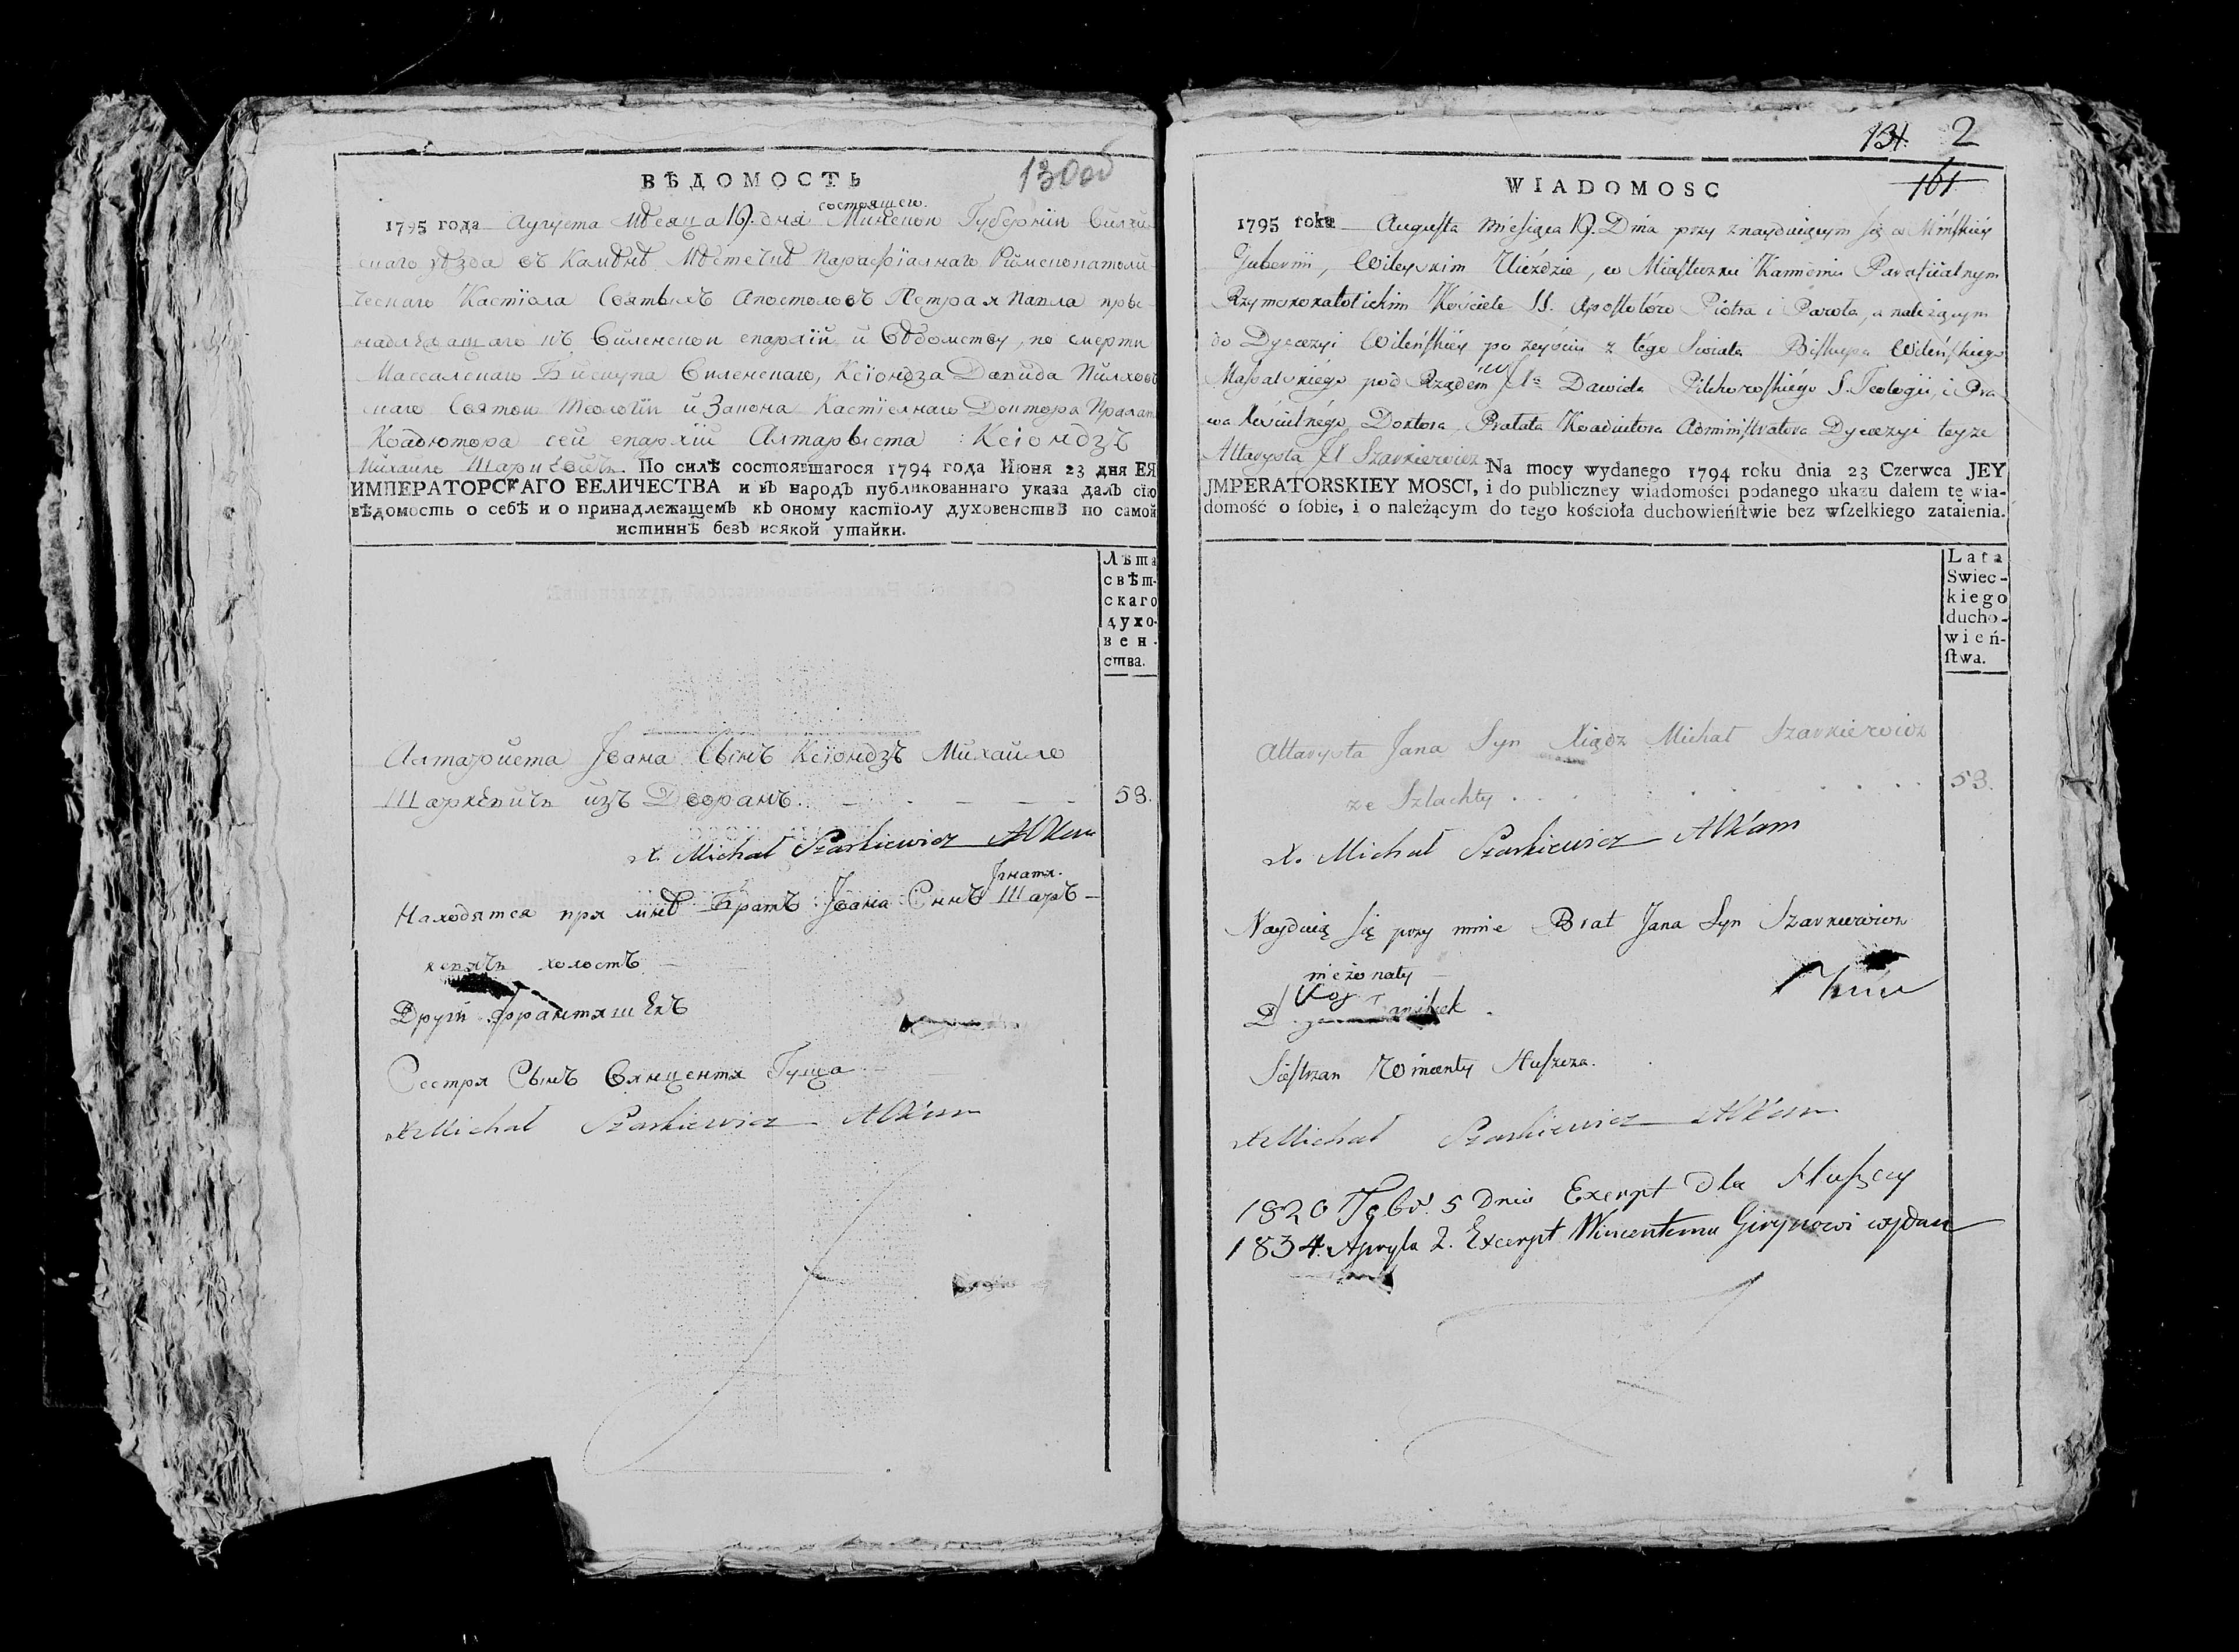 130об
ВѢДОМОСТЬ
состоящей.
1795 года Аугуста Мѣсяца 19. дня Минской Губернїи Вилей-
скаго уѣзда въ Каменѣ Мѣстечкѣ Парафїалнаго Римскокатоли-
ческаго Кастїола Святыхъ Апостоловъ Петра и Павла при-
надлежащаго къ Виленской епархїи и вѣдомству, по смерти
Массалскаго Бискупа Виленскаго, Ксїондза Давида Пилхов-
скаго Святой Теологїи и Закона Кастїелнаго Доктора Прелата
Коадютора сей епархїи Алтарыста : Ксїондзъ
Михайло Шаркевичъ. По силѣ состоявшагося 1794 года Июня 23 дня ЕЯ
ИМПЕРАТОРСКАГО ВЕЛИЧЕСТВА и въ народъ публикованнаго указа далъ сїю
вѣдомость о себѣ и о принадлежащемъ къ оному кастїолу духовенствѣ по самой
истиннѣ безъ всякой утайки.
Лѣта
свѣт-
скаго
духо-
вен-
ства.
Алтариста Јвана Сынъ Ксїондзъ Михайло
Шаркевичъ изъ Дворанъ. 53.
X. Michał Szarkiewicz AlKam
Јгнати.
Находятся при мнѣ Братъ Јвана Сынъ Шар-
кевичъ холостъ
Другїй Франтишекъ
Сестри Сынъ Винценти Гуща
X Michał Szarkiewicz AlKam
131. 2
161
WIADOMOSC
1795 roku Augusta Miesiąca 19. Dnia przy znayduiącym się w Mińskiey
Gubernii, Wileyskim Uieździe, w Miasteczku Kamieniu Parafiialnym
Rzymskokatolickim Kościele SS. Apostołów Piotra i Pawła, a należącym
do Dyecezyi Wileńskiey po zeyściu z tego Swiata Biskupa Wileńskiego
Massalskiego pod Rządem Dawida Pilchowskiego S. Teologii, i Pra-
wa Kościelnego Doktora, Prałata Koadiutora Administratora Dyecezyi teyże
Altarysta Szarkiewicz. Na mocy wydanego 1794 roku dnia 23 Czerwca JEY
JMPERATORSKIEY MOSCI, i do publiczney wiadomości podanego ukazu dałem tę wia-
domość o sobie, i o należącym do tego kościoła duchowieństwie bez wszelkiego zataienia.
Lata
Swiec-
kiego
ducho-
wień-
stwa.
Altarysta Jana Syn Xiądz Michał Szarkiewicz
ze Szlachty 53.
X. Michał Szarkiewicz AlKam
Nayduią się przy mnie Brat Jana Syn Szarkiewicz
nieżonaty
Siestrzan Wincenty Huszcza.
X Michał Szarkiewicz AlKam
1820 5 Dnia Exerpt dla Huszczy
1834. Apryla 2. Excerpt Wincentemu Girynowi wydan